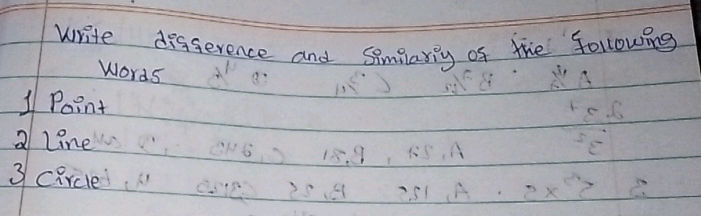 Write difference and Similariy of the following
Words
1 Point
2 Line
3 Circle